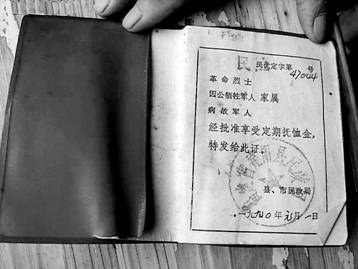 民 民优定字第 号
47044
革命烈士
因公牺牲军人 家属
病故军人
经批准享受定期抚恤金，
特发给此证。
县、市民政局
一九九〇年元月一日